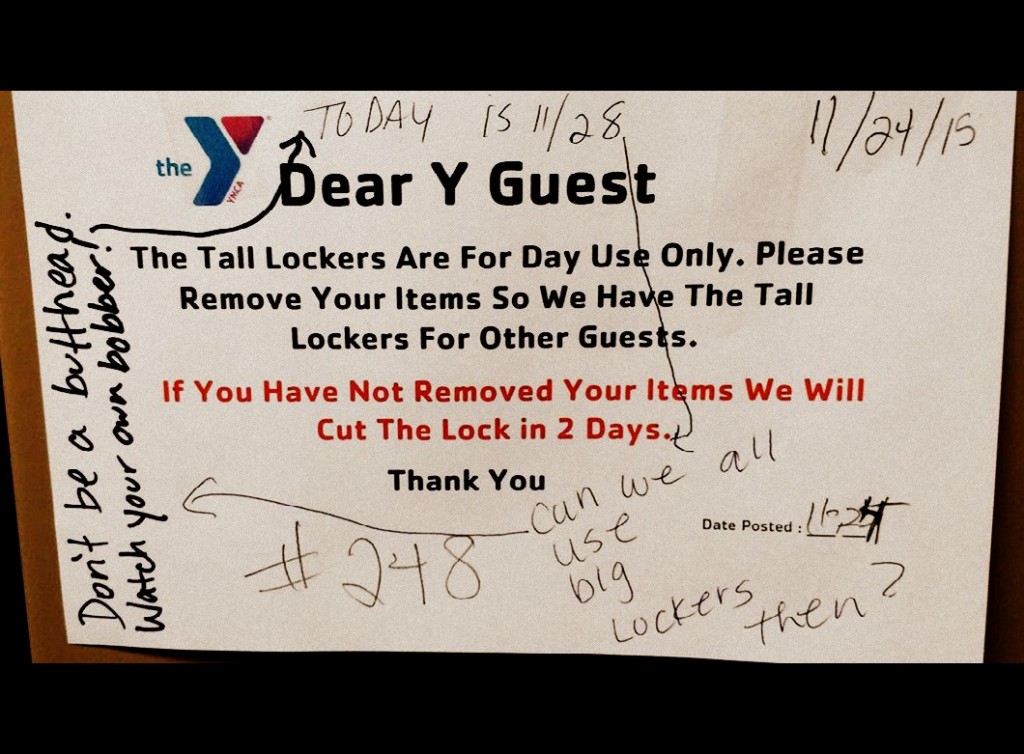 TODAY IS 11/28
11/24/15
the
YMCA
Dear Y Guest
The Tall Lockers Are For Day Use Only. Please
Remove Your Items So We Have The Tall
Lockers For Other Guests.
If You Have Not Removed Your Items We Will
Cut The Lock in 2 Days.
Thank You
can we all
use
big
Lockers then?
Date Posted :
#248
Don't be a butthead.
Watch your own bobber!